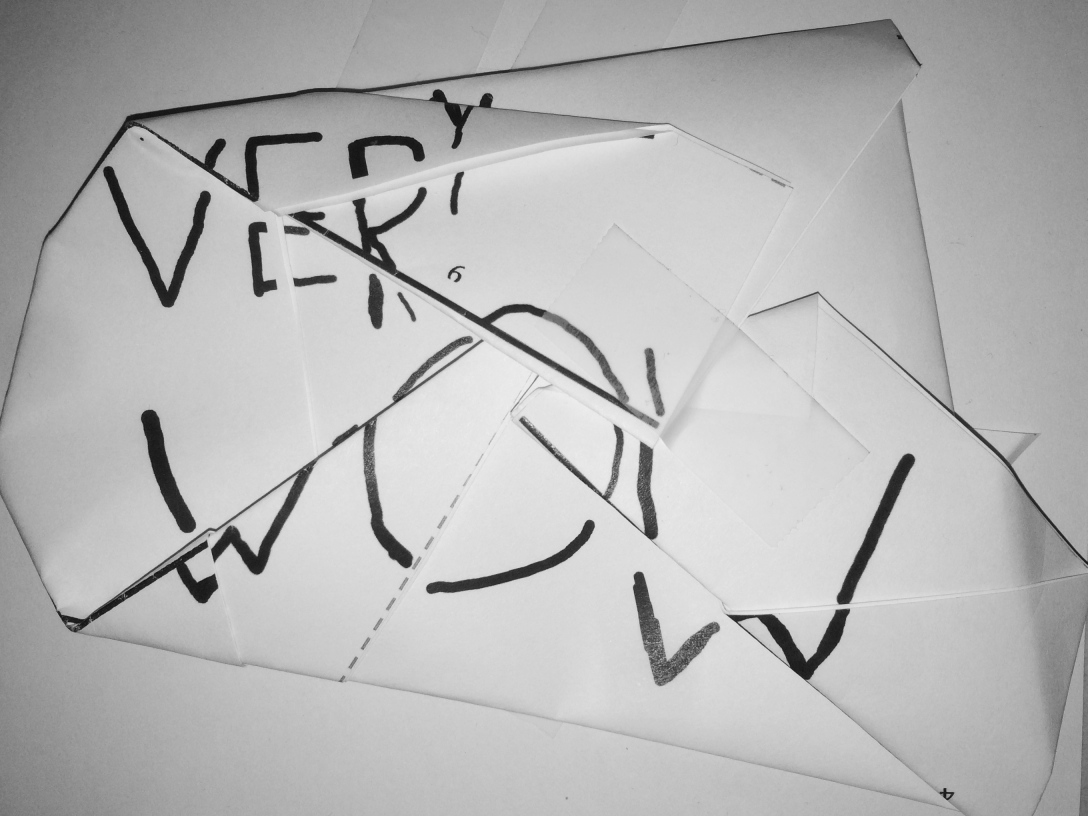 VERY
6
WOW
4